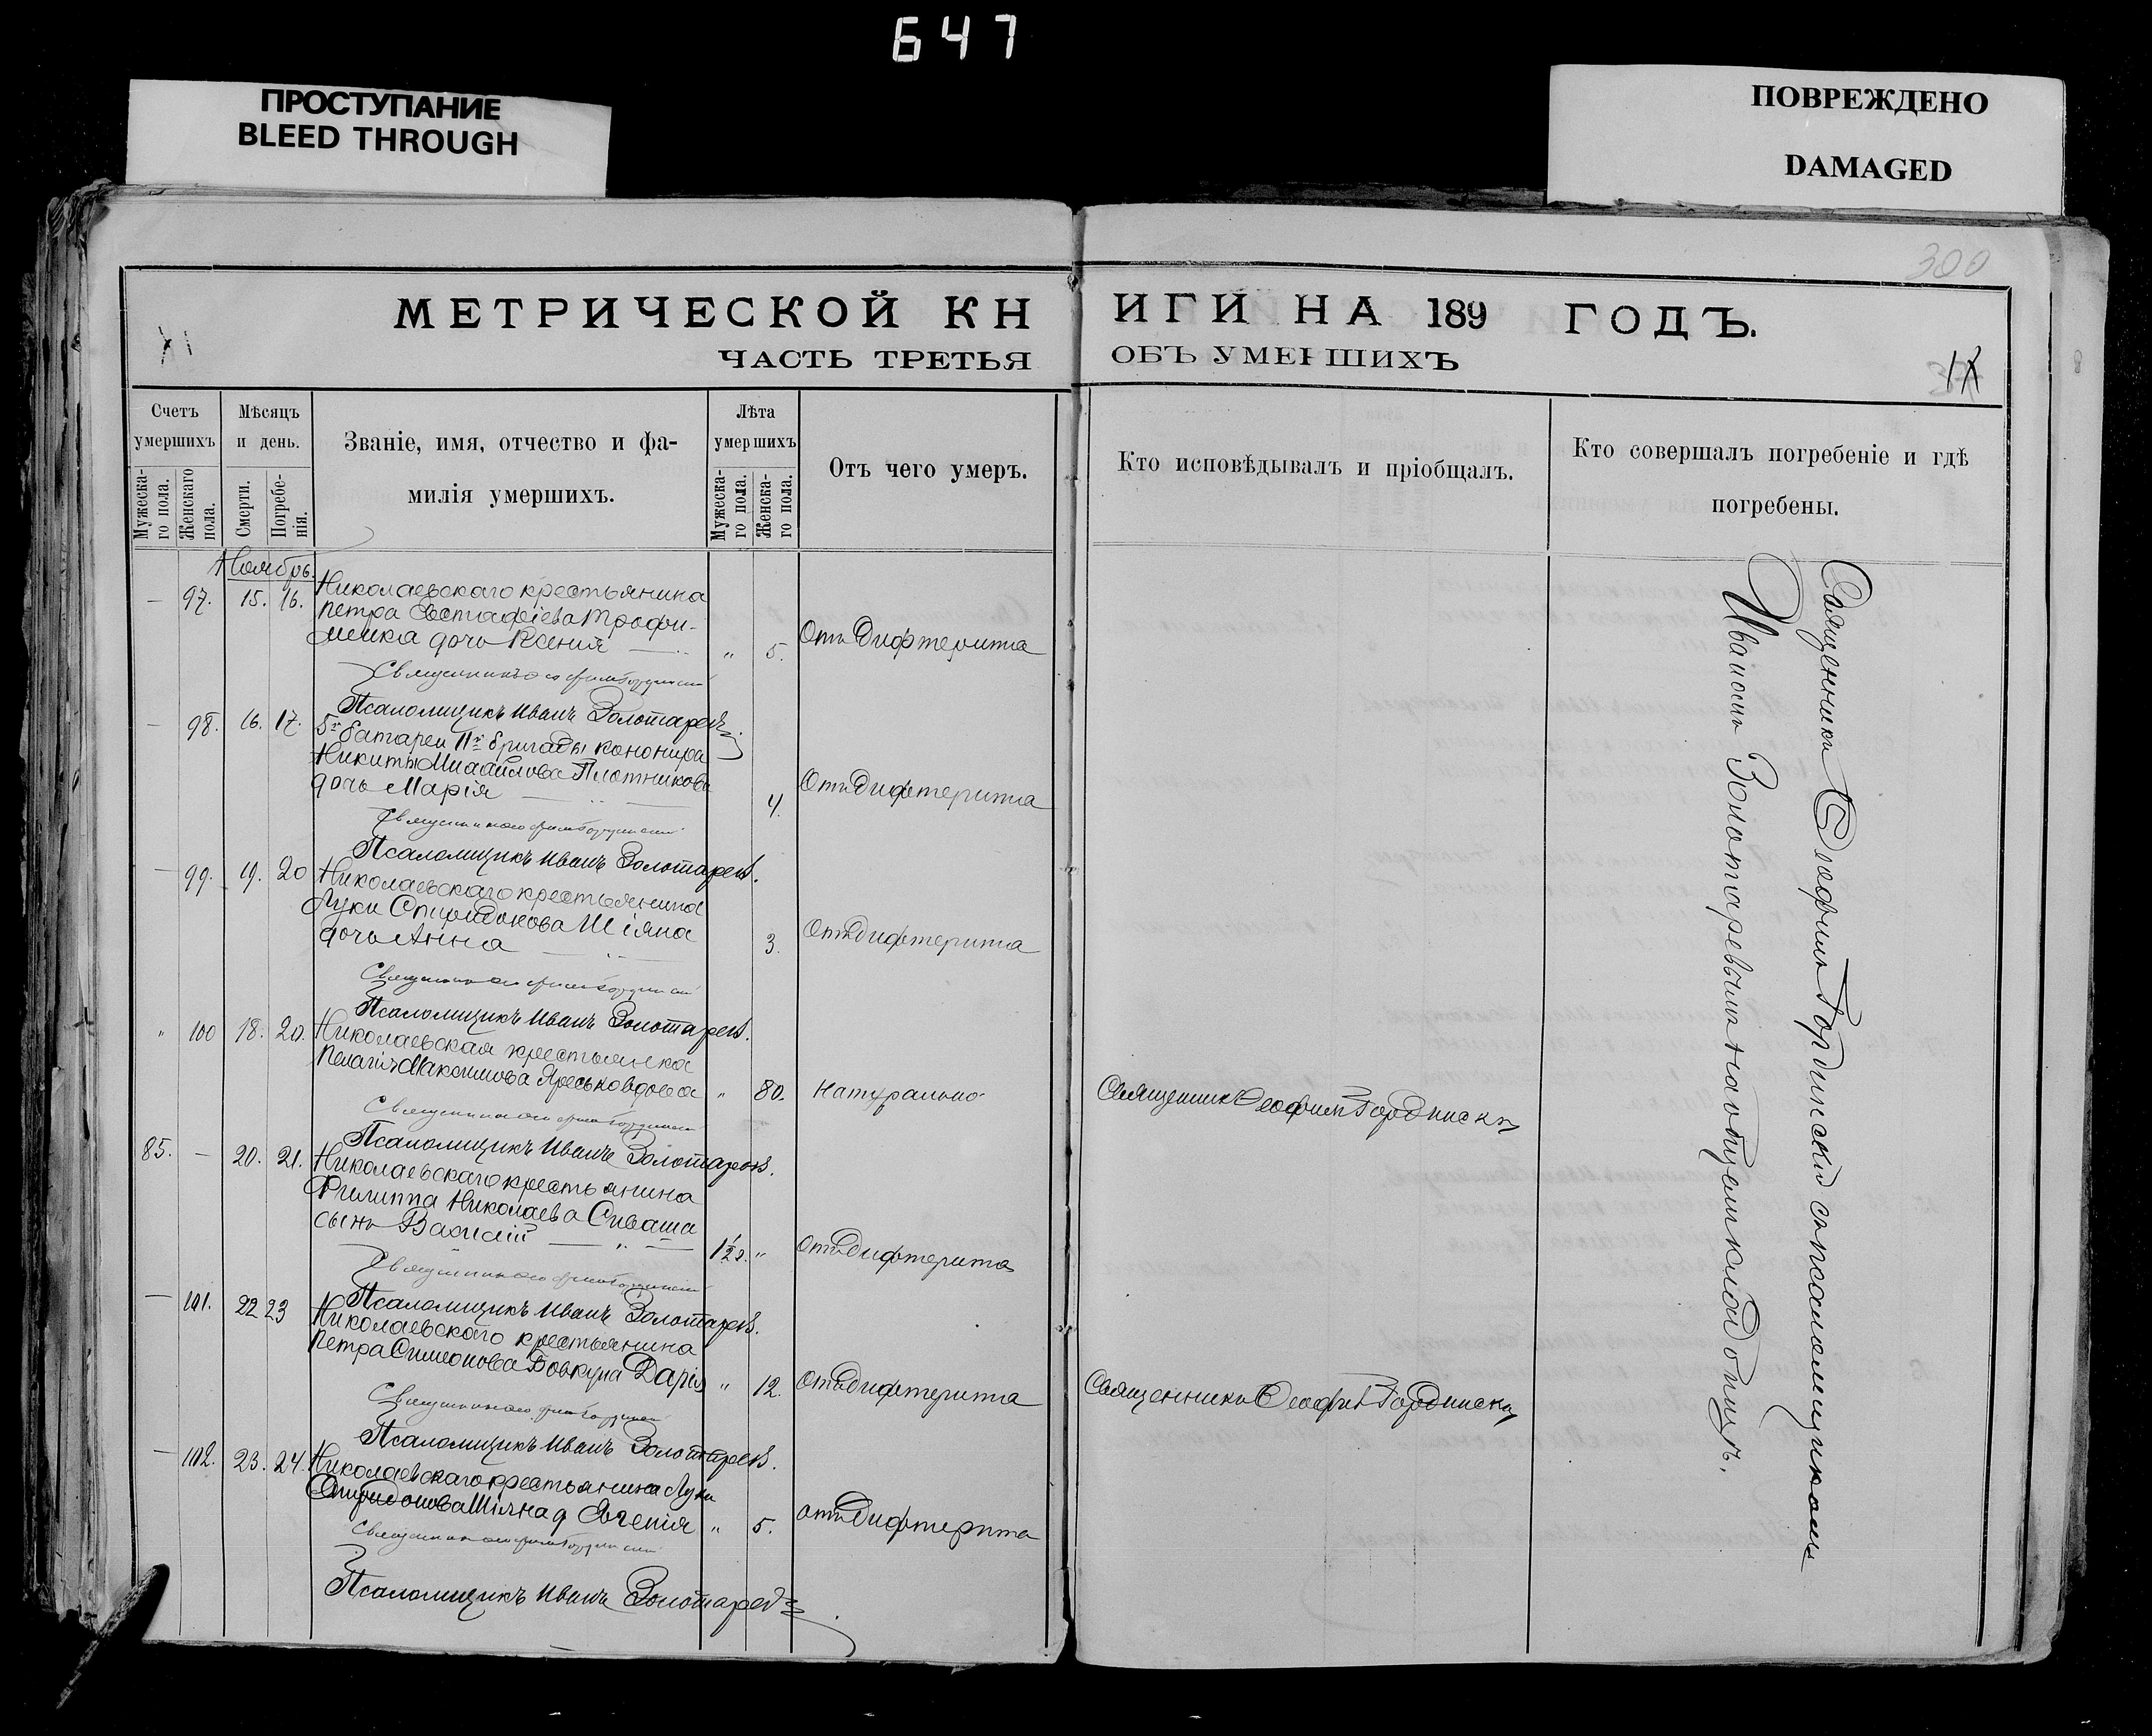 647
ПРОСТУПАНИЕ
BLEED THROUGH
ПОВРЕЖДЕНО
DAMAGED
300
МЕТРИЧЕСКОЙ КНИГИ НА 189 ГОДЪ.
ЧАСТЬ ТРЕТЬЯ ОБЪ УМЕРШИХЪ
Счетъ умершихъ
Мужеска-го пола.
Женскаго пола.
Мѣсяцъ и день.
Смерти.
Погребе-нія.
Званіе, имя, отчество и фа-
милія умершихъ.
Лѣта умершихъ
Мужеска-го пола.
Женска-го пола.
Отъ чего умеръ.
Кто исповѣдывалъ и пріобщалъ.
Кто совершалъ погребеніе и гдѣ
погребены.
Ноябрь.
— 97. 15. 16. Николаевскаго крестьянина
Петра Евстафіева Трофи-
менка дочь Ксенія " 5. Отъ Дифтерита
Псаломщикъ Иванъ Золотаревъ
— 98. 16. 17. 5й батареи 11й бригады канонира
Никиты Михайлова Плотникова
дочь Марія 4. Отъ дифтерита
Псаломщикъ Иванъ Золотаревъ.
— 99. 19. 20 Николаевскаго крестьянина
Луки Спиридонова Шіяна
дочь Анна 3. Отъ дифтерита
Псаломщикъ Иванъ Золотаревъ.
" 100 18. 20. Николаевская крестьянка
Пелагія Максимова Яресько вдова " 80. Натурально Священникъ Θеофилъ Гординскій
Псаломщикъ Иванъ Золотаревъ.
85. — 20. 21. Николаевскаго крестьянина
Филиппа Николаева Сиваша
сынъ Василій 1½ г. " Отъ дифтерита
Псаломщикъ Иванъ Золотаревъ.
— 101. 22 23 Николаевскаго крестьянина
Петра Симеонова Бовкуна Дарія " 12. Отъ дифтерита Священникъ Θеофилъ Гординскій
Псаломщикъ Иванъ Золотаревъ.
— 102. 23. 24. Николаевскаго крестьянина Луки
Спиридонова Шіяна д Евгенія " 5. отъ Дифтерита
Псаломщикъ Иванъ Золотаревъ
Священникъ Θеофилъ Гординскій съ псаломщикомъ
Иваномъ Золотаревымъ на общемъ кладбищѣ.